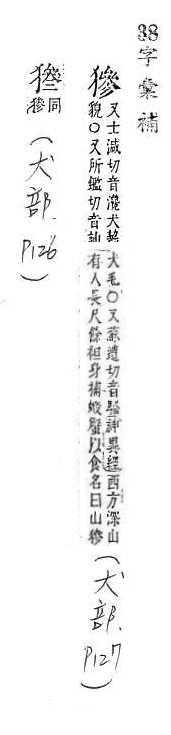 38字彙補
㺑
又士減切音瀺犬
貌〇又所鑑切音
犬毛〇又蘇遭切音騷神異經西方深山
有人長尺餘袒身捕蝦蟹以食名曰山㺑
(犬部. P127)
同㺑
(犬部. P126)